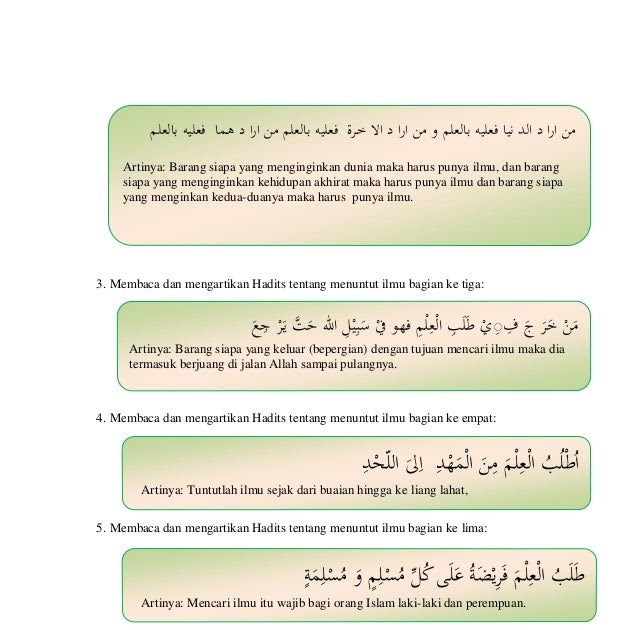 من ارا د الد نيا فعليه بالعلم و من ارا د الا خرة فعليه بالعلم من ارا د هما فعليه بالعلم
Artinya: Barang siapa yang menginginkan dunia maka harus punya ilmu, dan barang
siapa yang menginginkan kehidupan akhirat maka harus punya ilmu dan barang siapa
yang menginkan kedua-duanya maka harus punya ilmu.
3. Membaca dan mengartikan Hadits tentang menuntut ilmu bagian ke tiga:
مَنْ خَرَ جَ فِيْ طَلَبِ الْعِلْمِ فهو فِيْ سَبِيْلِ الله حَتَّ يَرْ جِعَ
Artinya: Barang siapa yang keluar (bepergian) dengan tujuan mencari ilmu maka dia
termasuk berjuang di jalan Allah sampai pulangnya.
4. Membaca dan mengartikan Hadits tentang menuntut ilmu bagian ke empat:
اُطْلُبُ الْعِلْمَ مِنَ الْمَهْدِ اِلىَ اللّحْدِ
Artinya: Tuntutlah ilmu sejak dari buaian hingga ke liang lahat,
5. Membaca dan mengartikan Hadits tentang menuntut ilmu bagian ke lima:
طَلَبُ الْعِلْمَ فَرِيْضَةُ عَلَى كُلِّ مُسْلِمٍ وَ مُسْلِمَةٍ
Artinya: Mencari ilmu itu wajib bagi orang Islam laki-laki dan perempuan.